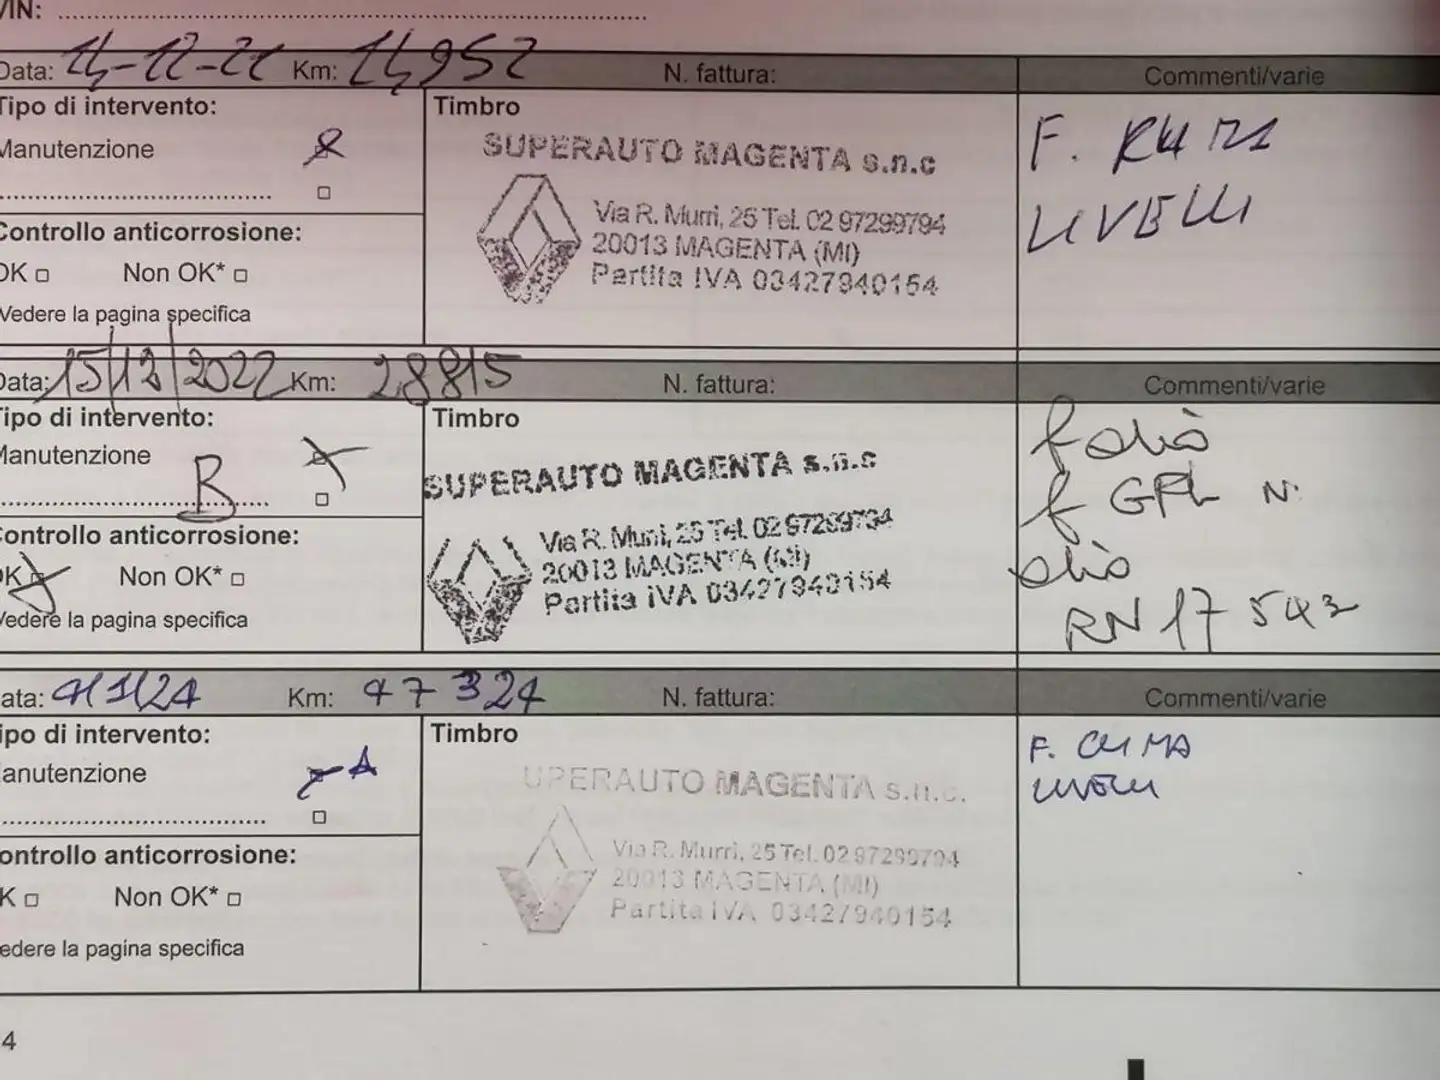 VIN:
Data: 14-12-21 Km: 14,952 N. fattura: Commenti/varie
Tipo di intervento:
Timbro
Manutenzione
SUPERAUTO MAGENTA s.n.c
Via R. Murri, 25 Tel. 02 97299794
20013 MAGENTA (MI)
Partita IVA 03427940154
F.
LIVELLI
Controllo anticorrosione:
OK Non OK*
Vedere la pagina specifica
Data: 15/12/2022 Km: 28815 N. fattura: Commenti/varie
Tipo di intervento:
Timbro
Manutenzione
B
SUPERAUTO MAGENTA s.n.c
Via R. Murri, 25 Tel. 02 97299794
20013 MAGENTA (MI)
Partita IVA 03427940154
f olio
f GPL N.
olio
RN 17 543
Controllo anticorrosione:
OK Non OK*
Vedere la pagina specifica
ata: Km: 47324 N. fattura: Commenti/varie
ipo di intervento:
Timbro
anutenzione
A
UPERAUTO MAGENTA s.n.c.
Via R. Murri, 25 Tel. 02 97299794
20013 MAGENTA (MI)
Partita IVA 03427940154
F. CLIMA
LIVELLI
ontrollo anticorrosione:
K Non OK*
edere la pagina specifica
4